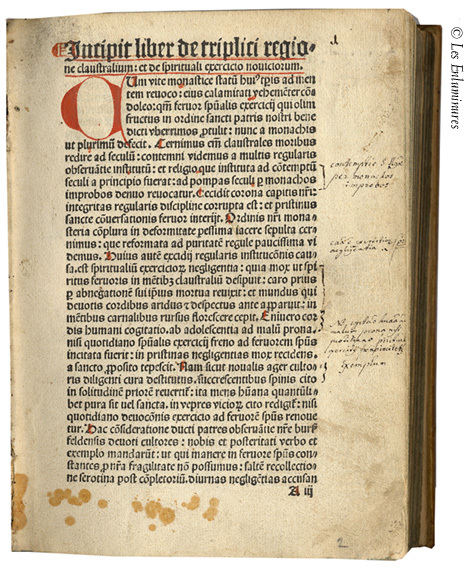 Incipit liber de triplici regio⸗
ne claustralium: et de spirituali exercicio nouiciorum.
CUm vite monastice statũ huiꝰ tp̃is ad men
tem reuoco: eius calamitatẽ vehemẽter cõ
doleo: qm̃ feruor sp̃ualis exercicij qui olim
fructus in ordine sancti patris nostri bene
dicti vberrimos ꝓtulit: nunc a monachis
ut plurimũ defecit. Cernimus em̃ claustrales moribus
redire ad seculũ: contemni videmus a multis regularis
obseruãtie institutũ: et religioẽ que instituta ad cõtemptũ
seculi a principio fuerat: ad pompas seculi ꝑ monachos
improbos denuo reuocatur. Cecidit corona capitis nr̃i:
integritas regularis discipline corrupta est: et pristinus
sancte cõuersationis feruor interijt. Ordinis nr̃i mona⸗
steria cõplura in deformitate pessima iacere sepulta cer⸗
nimus: que reformata ad puritatẽ regule paucissima vi
demus. Huius autẽ excidij regularis institucõnis cau⸗
sa. est spiritualiũ exercicioꝝ negligentia: quia mox ut spi
ritus feruoris in mẽtibꝫ claustraliũ desipuit: caro prius
ꝑ abnegatiõne sui ipius mortua reuixit: et mundus qui
deuotis cordibus aridus ⁊ despectus ante apparuit: in
mẽtibus carnalibus rursus florescere cepit. Enĩuero cor
dis humani cogitatio. ab adolescentia ad malũ prona.
nisi quotidiano sp̃ualis exercicij freno ad feruorem sp̃us
incitata fuerit: in pristinas negligentias mox recidens.
a sancto ꝓposito tepescit. Nam sicut noualis ager cultoꝛ
ris diligenti cura destitutus. succrescentibus spinis cito
in solitudinẽ priorẽ reuertit̃: ita mens hũana quantũli⸗
bet pura sit uel sancta. in vepres vicioꝝ cito redigit̃: nisi
quotidiano deuocõnis exercicio ad feruorẽ sp̃us renoue
tur. Dac cõsideratione ducti patres obseruãtie nr̃e burß
feldensis deuoti cultores: nobis et posteritati verbo et
exemplo mandarũt: ut qui manere in feruore sp̃us con⸗
stantes ꝓ nr̃a fragilitate nõ possumus: saltẽ recollectio⸗
ne serotina post cõpletoriũ. diurnas negligẽtias accusan
A iij
contemptio S. Reg.
per monachos
improbos
negligentia
exemplum
2
© Les Enluminures